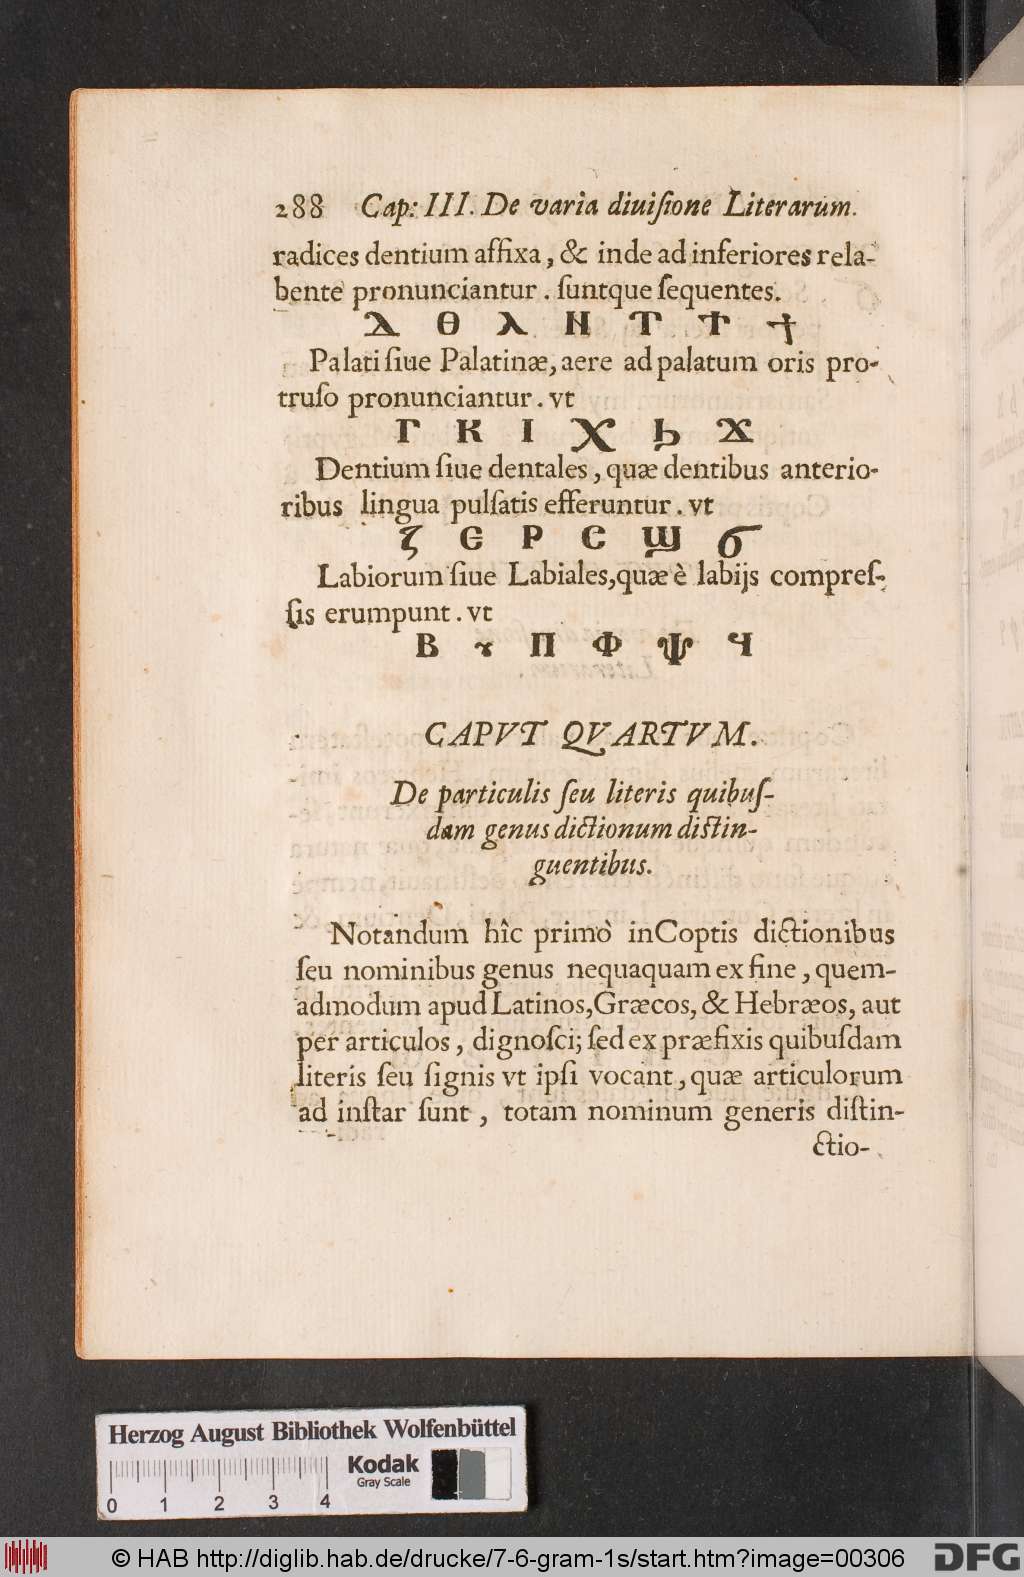 288 Cap: III. De varia diuiſione Literarum.
radices dentium affixa, & inde ad inferiores rela-
bente pronunciantur. ſuntque ſequentes.
Ⲇ Ⲑ Ⲗ Ⲛ Ⲧ Ϯ ϯ
Palati ſiue Palatinæ, aere ad palatum oris pro-
truſo pronunciantur. vt
Ⲅ Ⲕ Ⲓ Ⲭ Ϧ Ϫ
Dentium ſiue dentales, quæ dentibus anterio-
ribus lingua pulſatis efferuntur. vt
Ⲍ Ⲉ Ⲣ Ⲥ Ϣ Ϭ
Labiorum ſiue Labiales, quæ è labijs compreſ-
ſis erumpunt. vt
Ⲃ ȣ Ⲡ Ⲫ Ⲯ Ϥ
CAPVT QVARTVM.
De particulis ſeu literis quibuſ-
dam genus dictionum diſtin-
guentibus.
Notandum hîc primò in Coptis dictionibus
ſeu nominibus genus nequaquam ex fine, quem-
admodum apud Latinos, Græcos, & Hebræos, aut
per articulos, dignoſci; ſed ex præfixis quibuſdam
literis ſeu ſignis vt ipſi vocant, quæ articulorum
ad inſtar ſunt, totam nominum generis diſtin-
ctio-
Herzog August Bibliothek Wolfenbüttel
Kodak
Gray Scale
0 1 2 3 4
© HAB http://diglib.hab.de/drucke/7-6-gram-1s/start.htm?image=00306
DFG